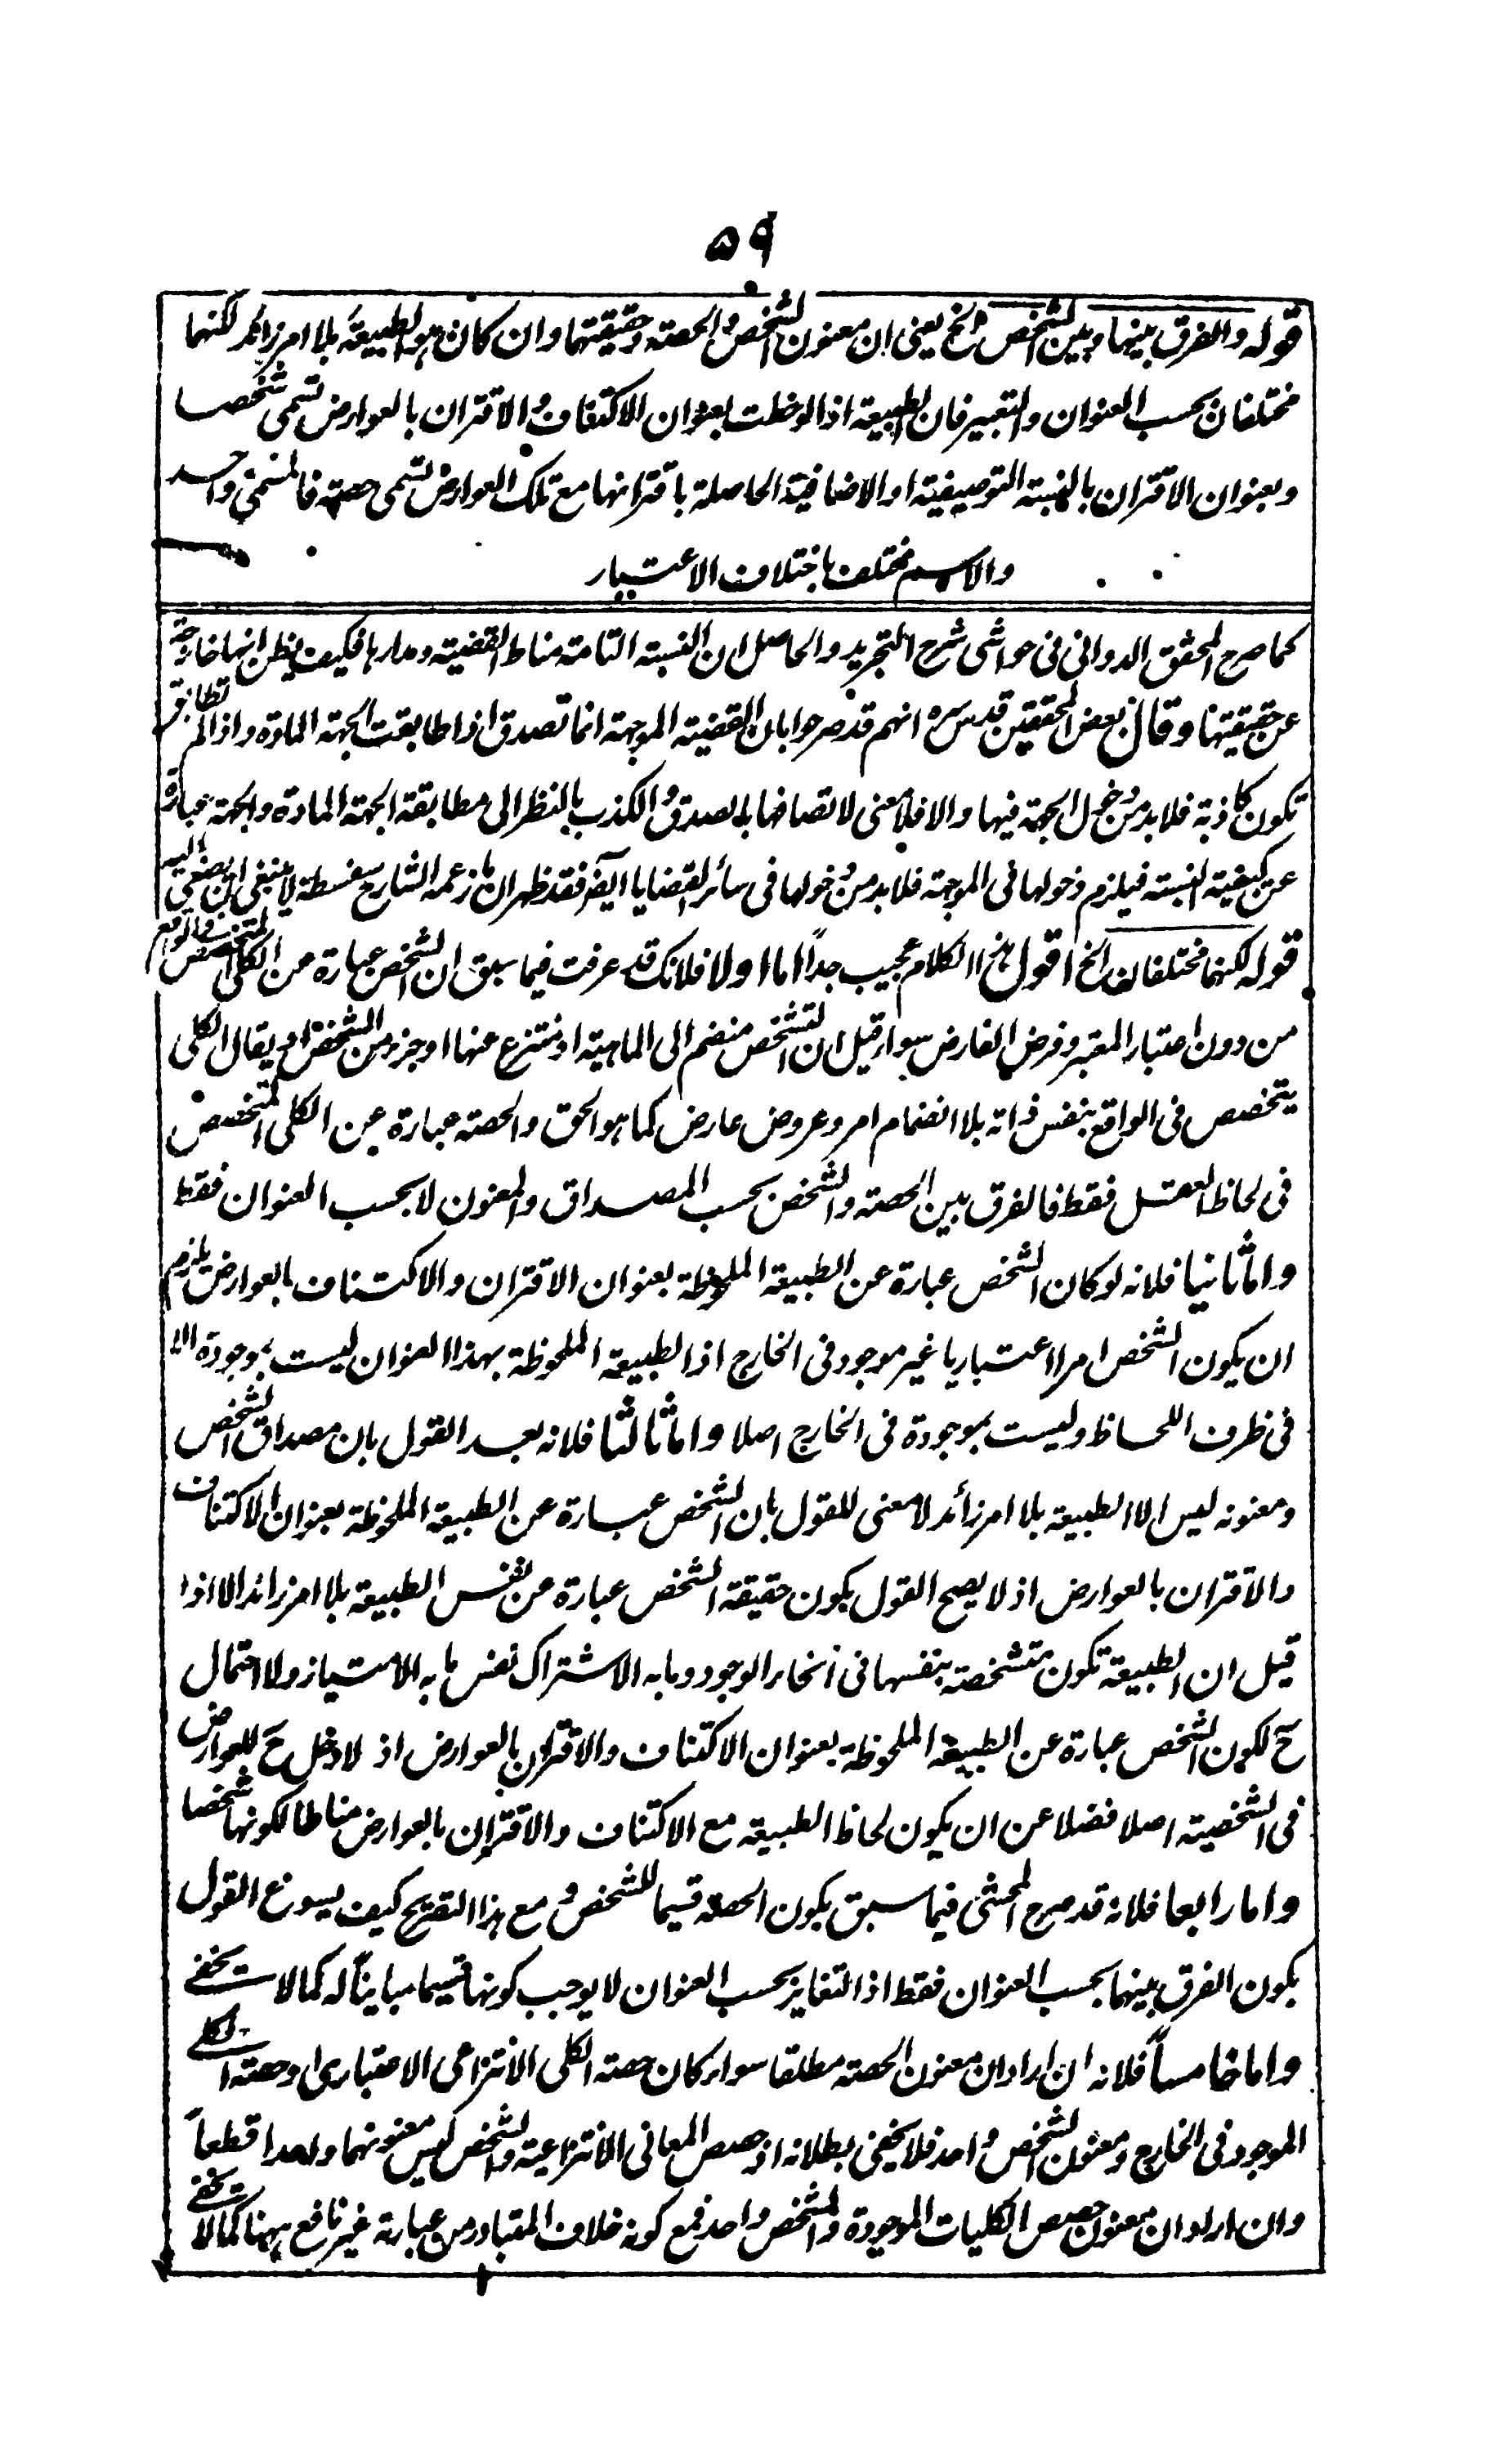 ٥٩
قوله والفرق بينهما وبين الشخص الخ يعني ان معنون الشخص والحصته وحقيقتهما وان كان هو الطبيعة بلا امر زائد لكنهما
مختلفان بحسب العنوان والتعبير فان الطبيعة اذا لوحظت بعنوان الاكتناف والاقتران بالعوارض تسمى شخصا
وبعنوان الاقتران بالنسبته التوصيفية او الاضافية الحاصلة باقترانها مع تلك العوارض تسمى حصته فالمسمى واحد
والاسم مختلف باختلاف الاعتبار
كما صرح المحقق الدواني في حواشي شرح التجريد والحاصل ان النسبته التامة مناط القضية ومدارها فكيف يظن انها خارجة
عن حقيقتها وقال بعض المحققين قدس سره انهم قد صرحوا بان القضية الموجهة انما تصدق اذا طابقت الجهة المادة واذا لم تطابق
تكون كاذبة فلابد من دخول الجهة فيها والا فلا معنى لاتصافها بالصدق والكذب بالنظر الى مطابقة الجهة المادة والجهة عبارة
عن كيفية النسبته فيلزم دخولها في الموجهة فلابد من دخولها في سائر القضايا ايضا فقد ظهر ان ما زعمه الشارح سفسطة لا ينبغي ان يصغى اليه
قوله لكنهما مختلفان الخ اقول هذا الكلام عجيب جداً اما اولا فلانك قد عرفت فيما سبق ان الشخص عبارة عن الكلي المتخصص في الواقع
من دون اعتبار المعتبر وفرض الفارض سواء قيل ان التشخص منضم الى الماهية او منتزع عنها او جزء من الشخص او يقال الكلي
يتخصص في الواقع بنفس ذاته بلا انضمام امر وعروض عارض كما هو الحق والحصته عبارة عن الكلي المتخصص
في لحاظ العقل فقط فالفرق بين الحصته والشخص بحسب المصداق والمعنون لا بحسب العنوان فقط
واما ثانيا فلانه لو كان الشخص عبارة عن الطبيعة الملحوظة بعنوان الاقتران والاكتناف بالعوارض يلزم
ان يكون الشخص امرا اعتباريا غير موجود في الخارج اذ الطبيعة الملحوظة بهذا العنوان ليست بموجودة الا
في ظرف اللحاظ وليست بموجودة في الخارج اصلا واما ثالثا فلانه بعد القول بان مصداق الشخص
ومعنونه ليس الا الطبيعة بلا امر زائد لا معنى للقول بان الشخص عبارة عن الطبيعة الملحوظة بعنوان الاكتناف
والاقتران بالعوارض اذ لا يصح القول بكون حقيقة الشخص عبارة عن نفس الطبيعة بلا امر زائد الا اذا
قيل ان الطبيعة تكون متشخصة بنفسها في انحاء الوجود وما به الاشتراك نفس ما به الامتياز ولا احتمال
ح لكون الشخص عبارة عن الطبيعة الملحوظة بعنوان الاكتناف والاقتران بالعوارض اذ لا دخل ح للعوارض
في الشخصية اصلا فضلا عن ان يكون لحاظ الطبيعة مع الاكتناف والاقتران بالعوارض مناطا لكونها شخصا
واما رابعا فلانه قد صرح المحشي فيما سبق بكون الحصة قسيما للشخص ومع هذا التصريح كيف يسوغ القول
بكون الفرق بينهما بحسب العنوان فقط اذ التغاير بحسب العنوان لا يوجب كونها قسيما مبايناً له كما لا يخفى
واما خامساً فلانه ان اراد ان معنون الحصته مطلقا سواء كان حصته الكلي الانتزاعي الاعتباري او حصته الكلي
الموجود في الخارج ومعنون الشخص واحد فلا يخفى بطلانه اذ حصص المعاني الانتزاعية والشخص ليس معنونهما واحدا قطعاً
وان اراد ان معنون حصص الكليات الموجودة والشخص واحد فمع كونه خلاف المتبادر من عبارته غير نافع ههنا كما لا يخفى